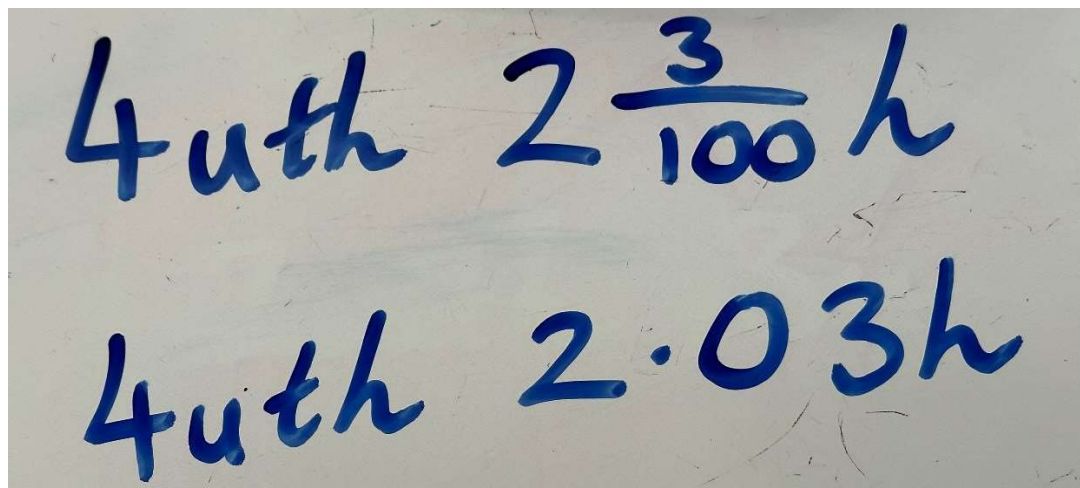 4uth 2 3/100 h
4uth 2.03h